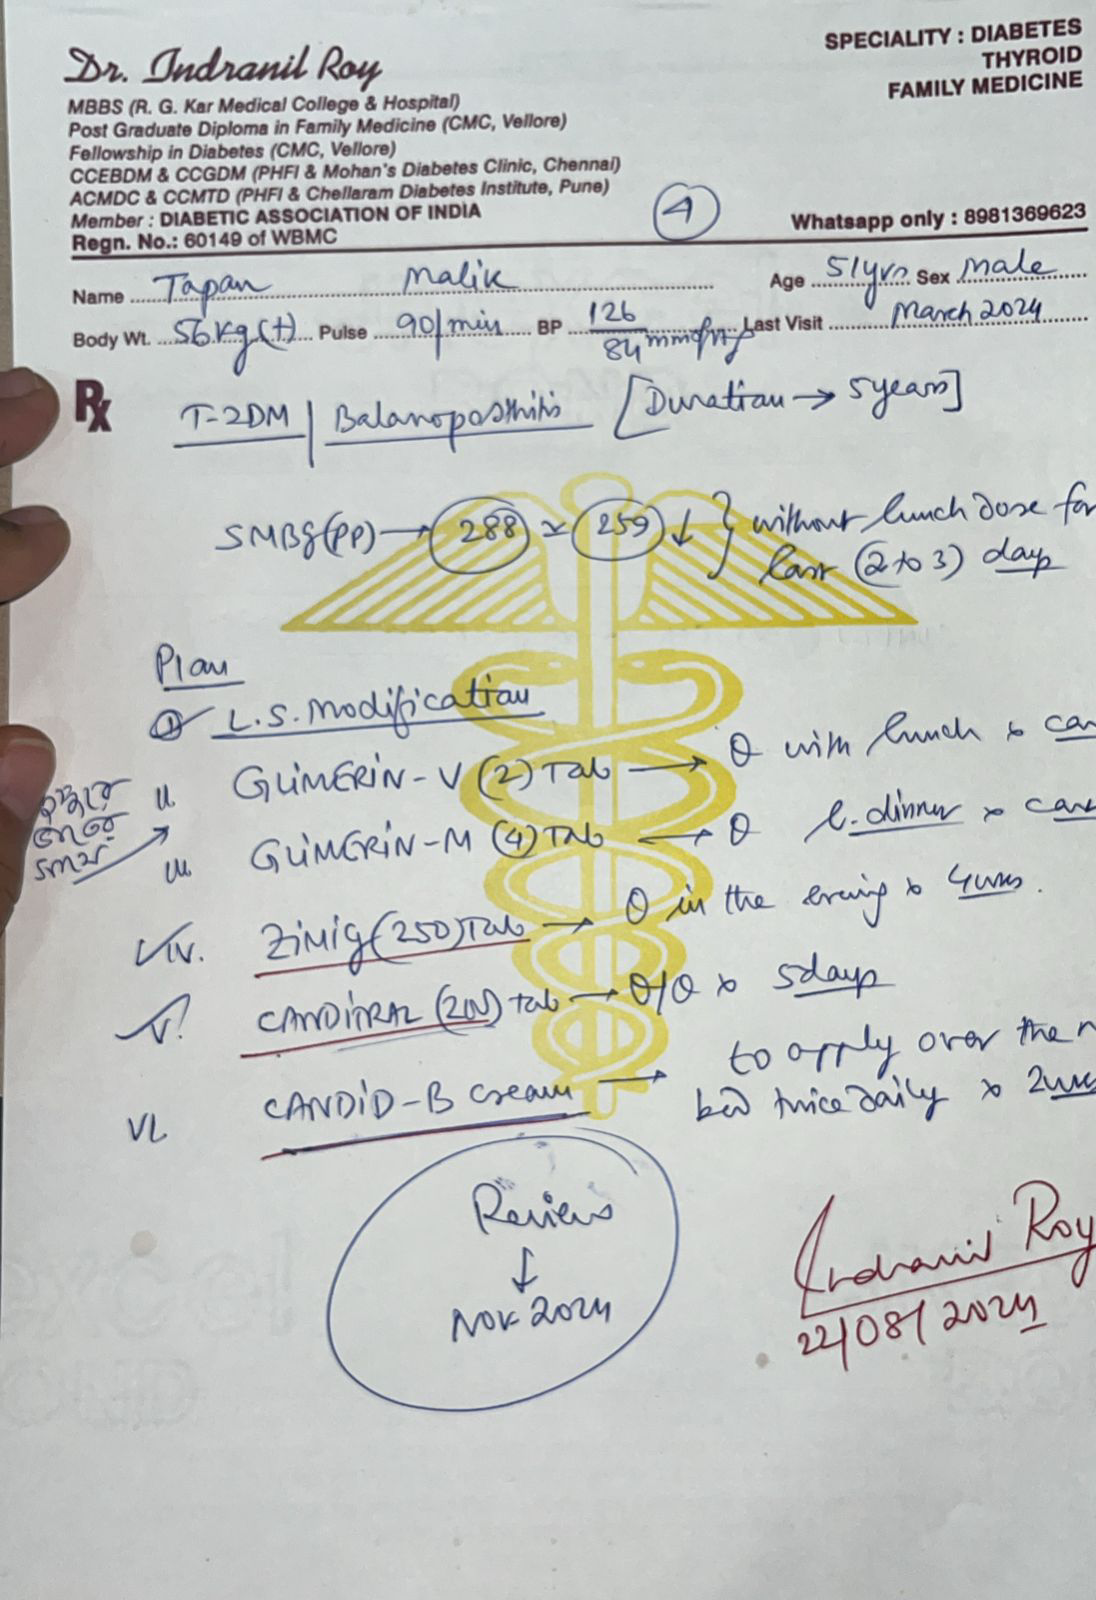 Dr. Indranil Roy
SPECIALITY : DIABETES
THYROID
FAMILY MEDICINE
MBBS (R. G. Kar Medical College & Hospital)
Post Graduate Diploma in Family Medicine (CMC, Vellore)
Fellowship in Diabetes (CMC, Vellore)
CCEBDM & CCGDM (PHFI & Mohan's Diabetes Clinic, Chennai)
ACMDC & CCMTD (PHFI & Chellaram Diabetes Institute, Pune)
Member : DIABETIC ASSOCIATION OF INDIA
Regn. No.: 60149 of WBMC
4
Whatsapp only : 8981369623
Name Tapan Malik Age 51yrs Sex Male
Body Wt. 56kg(t) Pulse 90/min BP 126/84 mmofHg Last Visit March 2024
Rx
T-2DM | Balanoposthitis [Duration → 5years]
SMBG(PP) → 288 ≃ 259 ↓ } without lunch dose for
last (2 to 3) days
Plan
① L.S. Modification
ii GLIMERIN-V (2) Tab → θ with lunch x
iii GLIMERIN-M (4) Tab → θ b. dinner x
iv. ZIMIG (250) Tab → θ in the evening x 4wks.
v. CANDITRAL (200) tab → θ/θ x 5days
vi CANDID-B cream → to apply over the
bed twice daily x
Review
↓
Nov 2024
Indranil Roy
22/08/2024